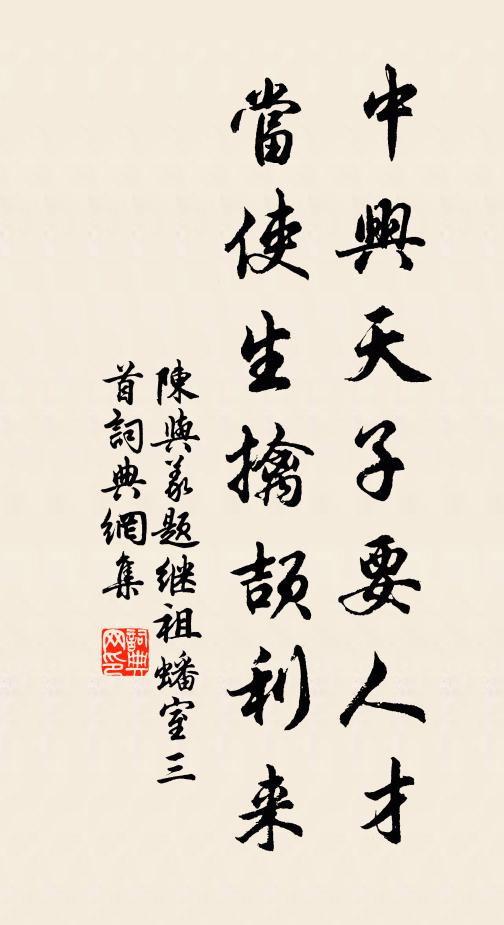 中興天子要人才
當使生擒頡利来
陳與義題继祖蟠室三
首詞典網集
詞典网印